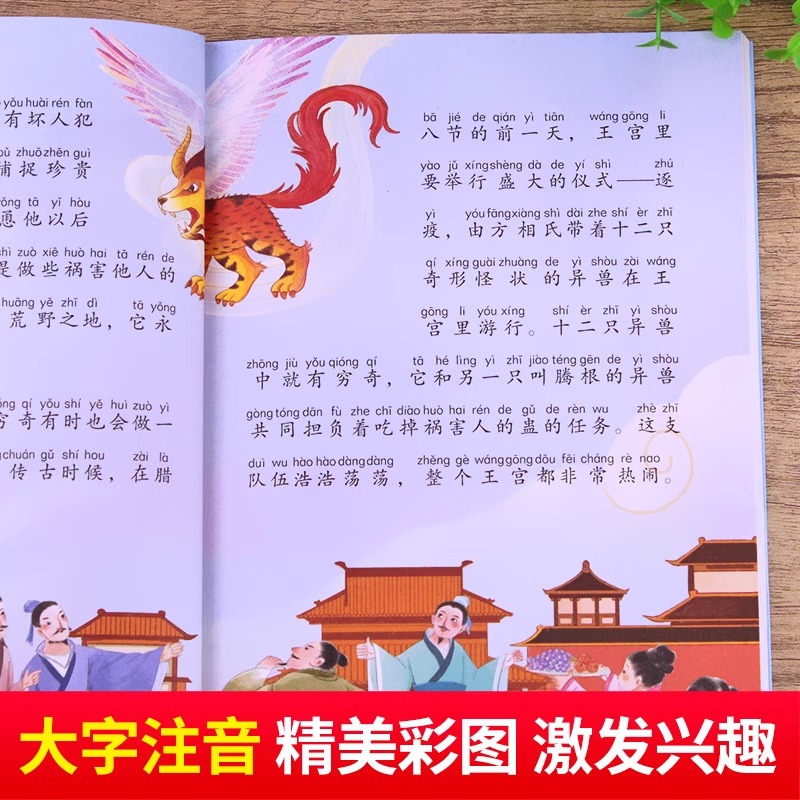 yǒu huài rén fàn
有坏人犯
zhuō zhēn guì
捕捉珍贵
tā yǐ hòu
愿他以后
zuò xiē huò hai tā rén de
是做些祸害他人的
huāng yě zhī dì tā yǒng
荒野之地，它永
qí yǒu shí yě huì zuò yì
穷奇有时也会做一
chuán gǔ shí hou zài là
传古时候，在腊
bā jié de qián yì tiān wáng gōng li
八节的前一天，王宫里
yào jǔ xíng shèng dà de yí shì zhú
要举行盛大的仪式——逐
yì yóu fāng xiàng shì dài zhe shí èr zhī
疫，由方相氏带着十二只
qí xíng guài zhuàng de yì shòu zài wáng
奇形怪状的异兽在王
gōng li yóu xíng shí èr zhī yì shòu
宫里游行。十二只异兽
zhōng jiù yǒu qióng qí tā hé lìng yì zhī jiào téng gēn de yì shòu
中就有穷奇，它和另一只叫腾根的异兽
gòng tóng dān fù zhe chī diào huò hai rén de gǔ de rèn wu zhè zhī
共同担负着吃掉祸害人的蛊的任务。这支
duì wu hào hào dàng dàng zhěng gè wáng gōng dōu fēi cháng rè nao
队伍浩浩荡荡，整个王宫都非常热闹。
大字注音 精美彩图 激发兴趣